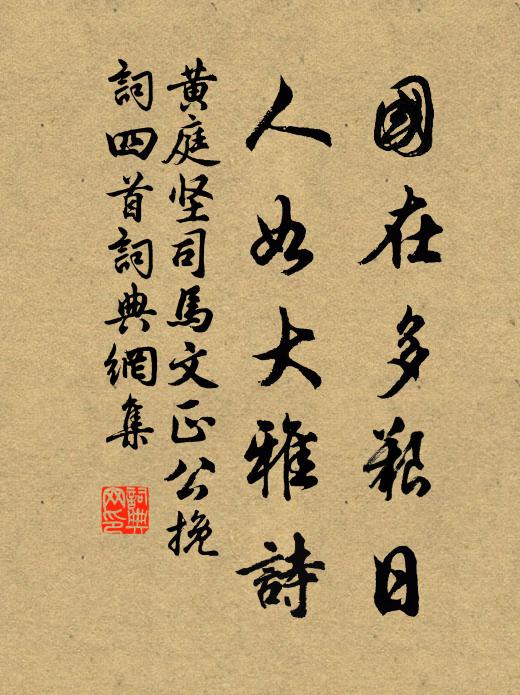 國在多艱日
人如大雅詩
黄庭坚司馬文正公挽
詞四首詞典網集
詞典
网印